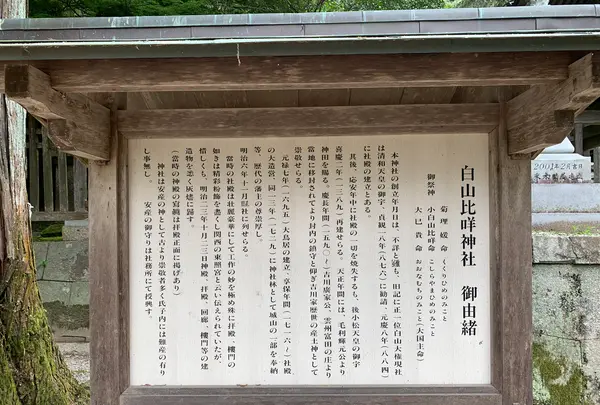 白山比咩神社　御由緒
御祭神　菊理媛命　くくりひめのみこと
小白山比咩命　こしらやまひめのみこと
大己貴命　おおなむちのみこと(大国主命)
本神社の創立年月日は、不詳と雖も、旧記に正一位白山大権現社
は清和天皇の御宇、貞観一八年(八七六)に勧請、元慶八年(八八四)
に社殿の建立とある。
其後、応安年中に社殿の一切を焼失するも、後小松天皇の御宇
喜慶二年(一三八九)再建せらる。天正年間には、毛利輝元公より
神田を賜る。慶長年間(一五九〇～)吉川廣家公、雲州富田の庄より
当地に移封されてより封内の鎮守と仰ぎ吉川家歴世の産土神として
崇敬せらる。
元禄七年(一六九五)大鳥居の建立、享保年間(一七一六～)社殿
の大造営、同一三年(一七一九)に神社林として城山の一部を奉納
等、歴代の藩主の尊崇厚し。
明治六年十一月県社に列せらる。
当時の社殿は壮麗豪華にして工作の妙を極め殊に拝殿、楼門の
如きは精彩粉飾を盡もし関西の東照宮と云い伝えられていたが、
惜しくも、明治二三年十月二三日神殿、拝殿、回廊、楼門等の建
造物を悉く灰燼に歸す。
(当時の神殿の寫眞は拝殿正面に掲げあり)
神社は安産の神として古より崇敬者多く氏子内には難産の有り
し事無し。　安産の御守りは社務所にて授興す。
2001年2月吉日